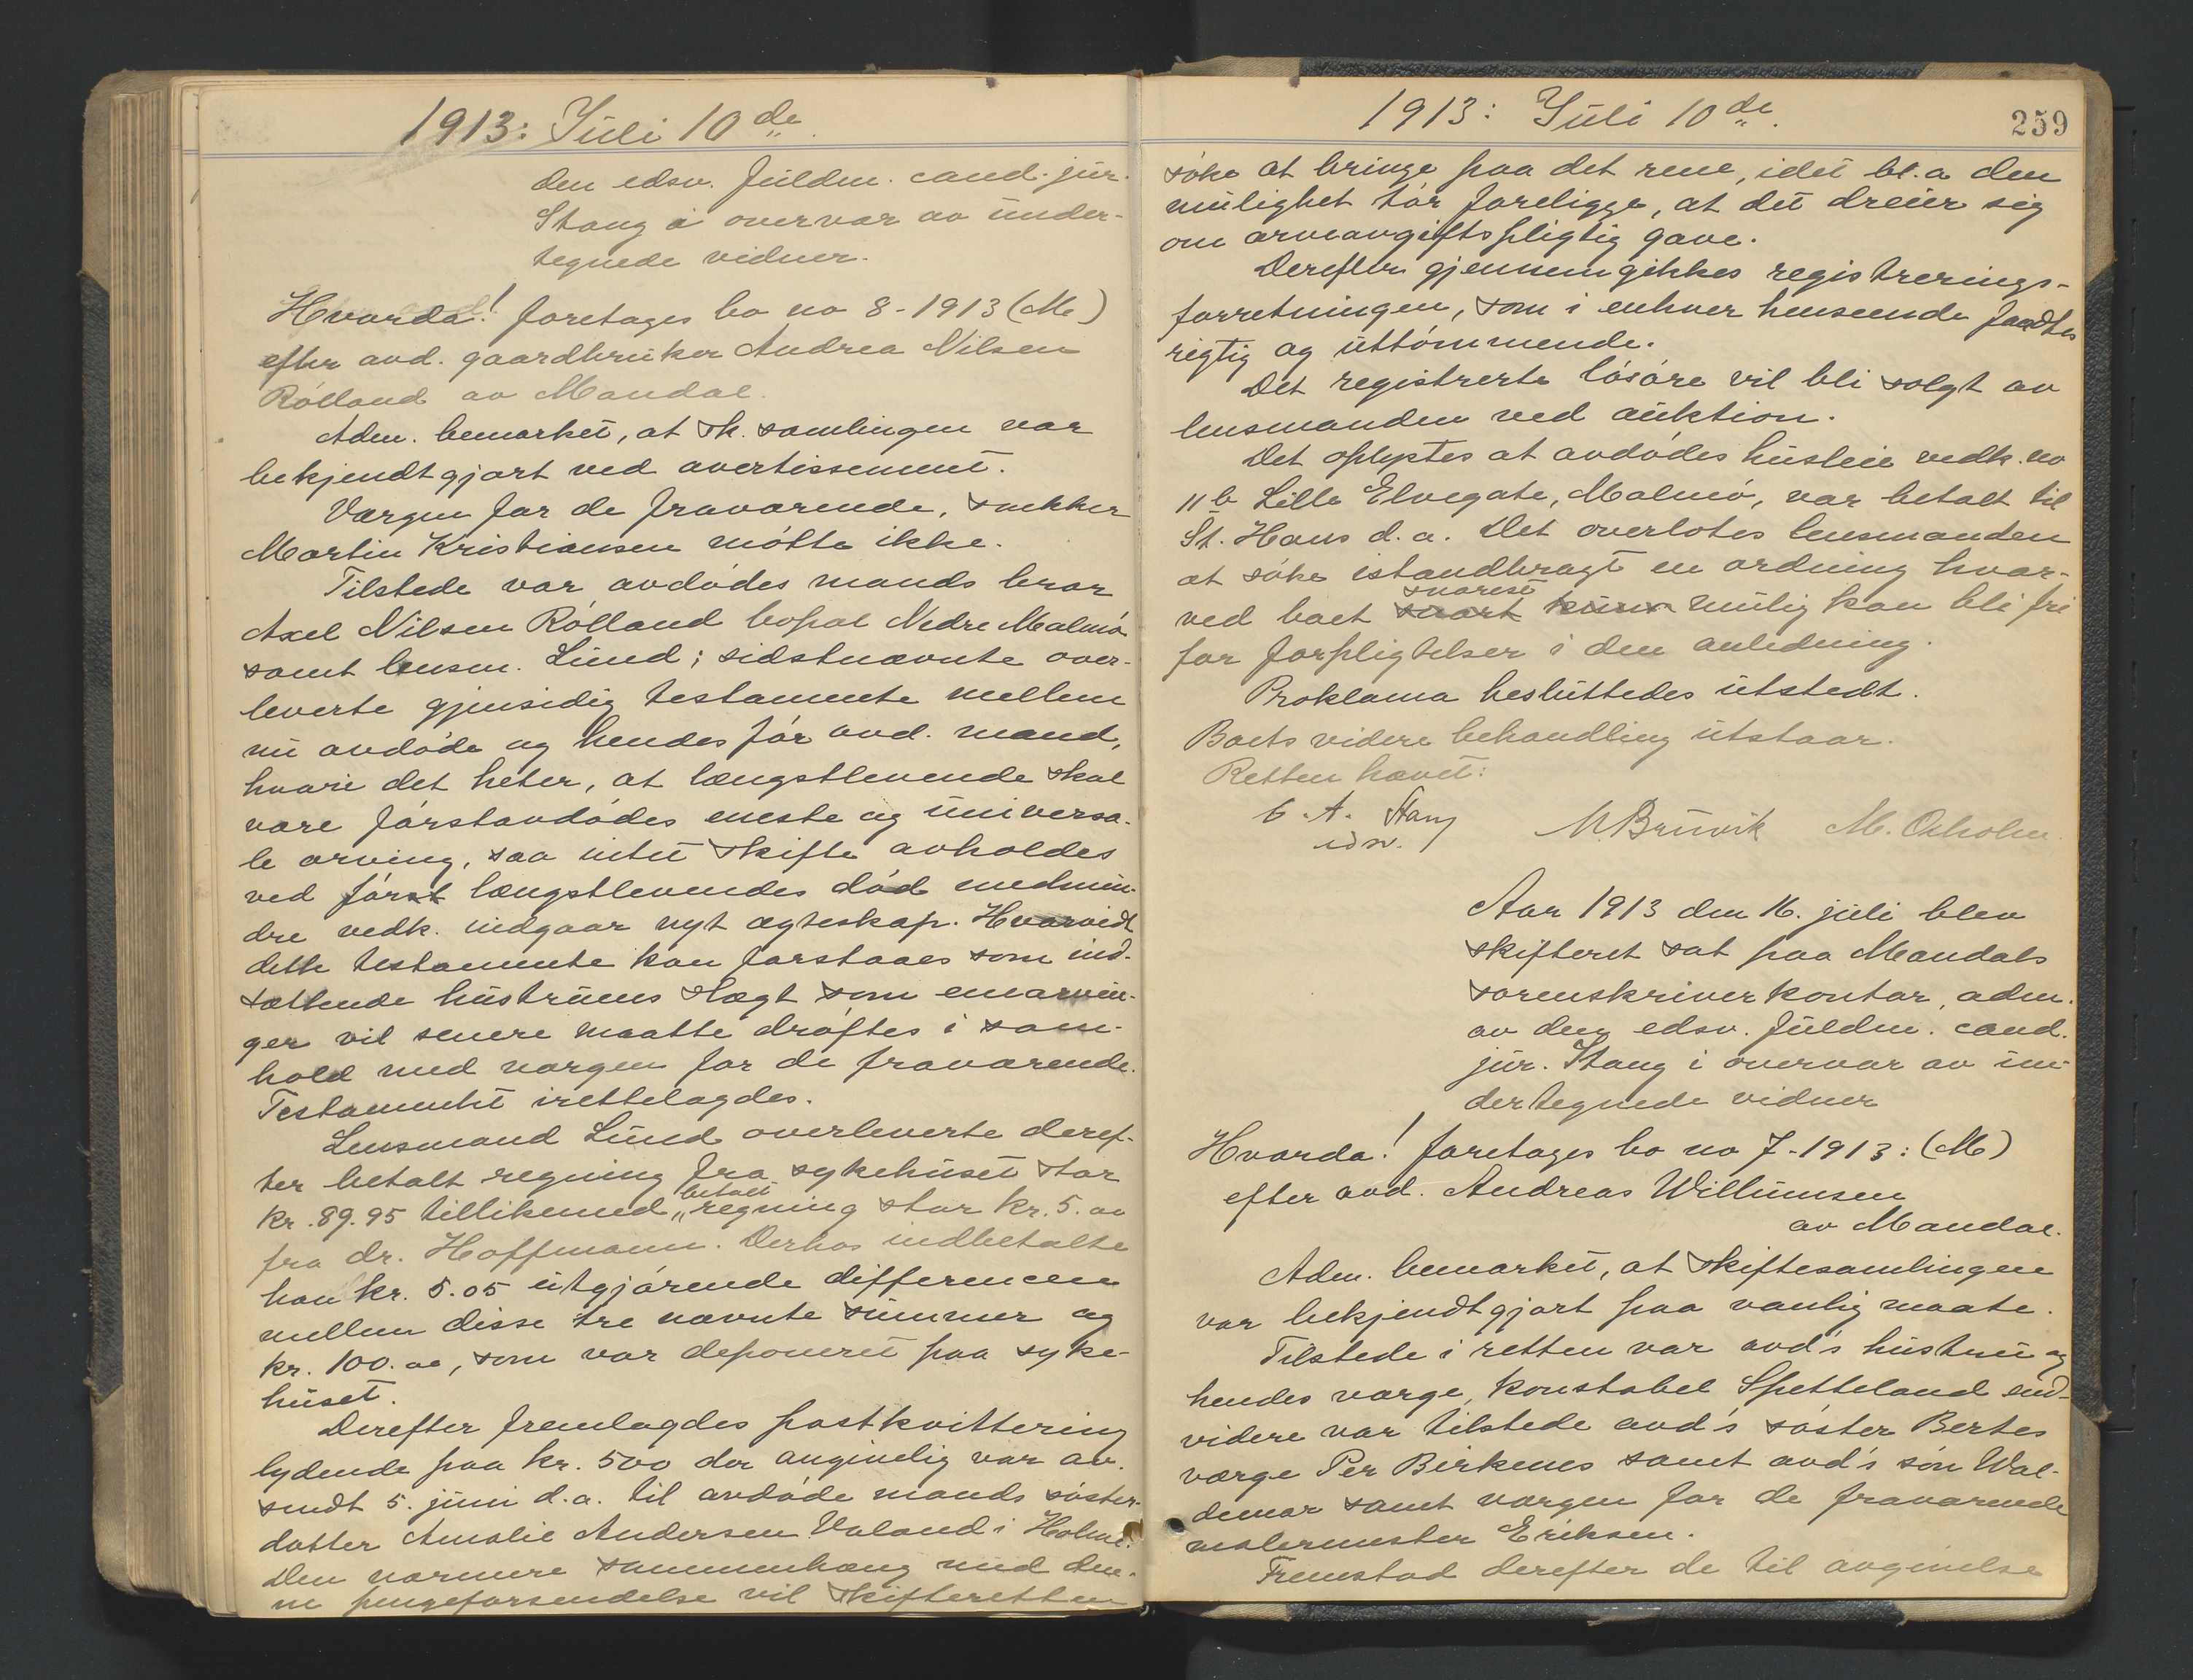 1913: Juli 10de
den edsv. fuldm. cand. jur.
Stang i overvær av under-
tegnede vidner.
Hvorda! foretages bo no 8-1913 (M)
efter avd. gaardbruker Andrea Nilsen
Rölland av Mandal.
Adm. bemerket, at sk. samlingen var
bekjendtgjort ved avertissement.
Værgen for de fraværende, snekker
Martin Kristiansen mötte ikke.
Tilstede var avdödes mands bror
Axel Nilsen Rölland bopæl Nedre Malmö
samt lensm. Lund; sidstnævnte over-
leverte gjensidig testamente mellem
nu avdöde og hendes för avd. mand,
hvori det heter, at længstlevende skal
være förstavdödes eneste og universa-
le arving, saa intet skifte avholdes
ved först længstlevendes död medmin-
dre vedk. indgaar nyt ægteskap. Hvorvidt
dette testamente kan forstaaes som ind-
sættende hustruens slegt som enearvin-
ger vil senere maatte dröftes i sam-
hold med vergen for de fraværende.
Testamentet irettelagdes.
Lensmand Lund overleverte deref-
ter betalt regning fra sykehuset stor
kr. 89.95 tillikemed "betalt regning stor kr. 5.oo
fra dr. Hoffmann. Derhos indbetalte
han kr. 5.05 utgjörende differencen
mellem disse tre nævnte summer og
kr. 100.oo, som var deponeret paa syke-
huset.
Derefter fremlagdes postkvittering
lydende paa kr. 500 der angivelig var av-
sendt 5. juni d.a. til avdöde mands söster-
datter Amalie Andersen Valand i Holme.
Den nærmere sammenhæng med den-
ne pengeforsendelse vil skifteretten
1913: Juli 10de.
259
söke at bringe paa det rene, idet bl.a den
mulighet tör foreligge, at det dreier sig
om arveavgiftspligtig gave.
Derefter gjennemgikkes registrerings-
forretningen, som i enhver henseende fandtes
rigtig og uttömmende.
Det registrerte lösöre vil bli solgt av
lensmanden ved auktion.
Det oplystes at avdödes husleie vedk. no
11b Lille Elvegate, Malmö, var betalt til
St. Hans d.a. Det overlotes lensmanden
at söke istandbragt en ordning hvor-
ved boet snart snarest mulig kan bli fri
for forpligtelser i den anledning.
Proklama besluttedes utstedt.
Boets videre behandling utstaar.
Retten hævet:
C. A. Stang
edsv.
M Bruvik M. Oxholm.
Aar 1913 den 16. juli blev
skifteret sat paa Mandals
sorenskriverkontor, adm.
av den edsv. fuldm. cand.
jur. Stang i overvær av un-
dertegnede vidner
Hvorda! foretages bo no 7-1913: (M)
efter avd. Andreas Willumsen
av Mandal.
Adm. bemerket, at skiftesamlingen
var bekjendtgjort paa vanlig maate.
Tilstede i retten var avd's hustru og
hendes værge, konstabel Spetteland end-
videre var tilstede avd's söster Bertes
værge Per Birkenes samt avd's sön Wal-
demar samt værgen for de fraværende
malermester Eriksen.
Fremstod derefter de til avgivelse